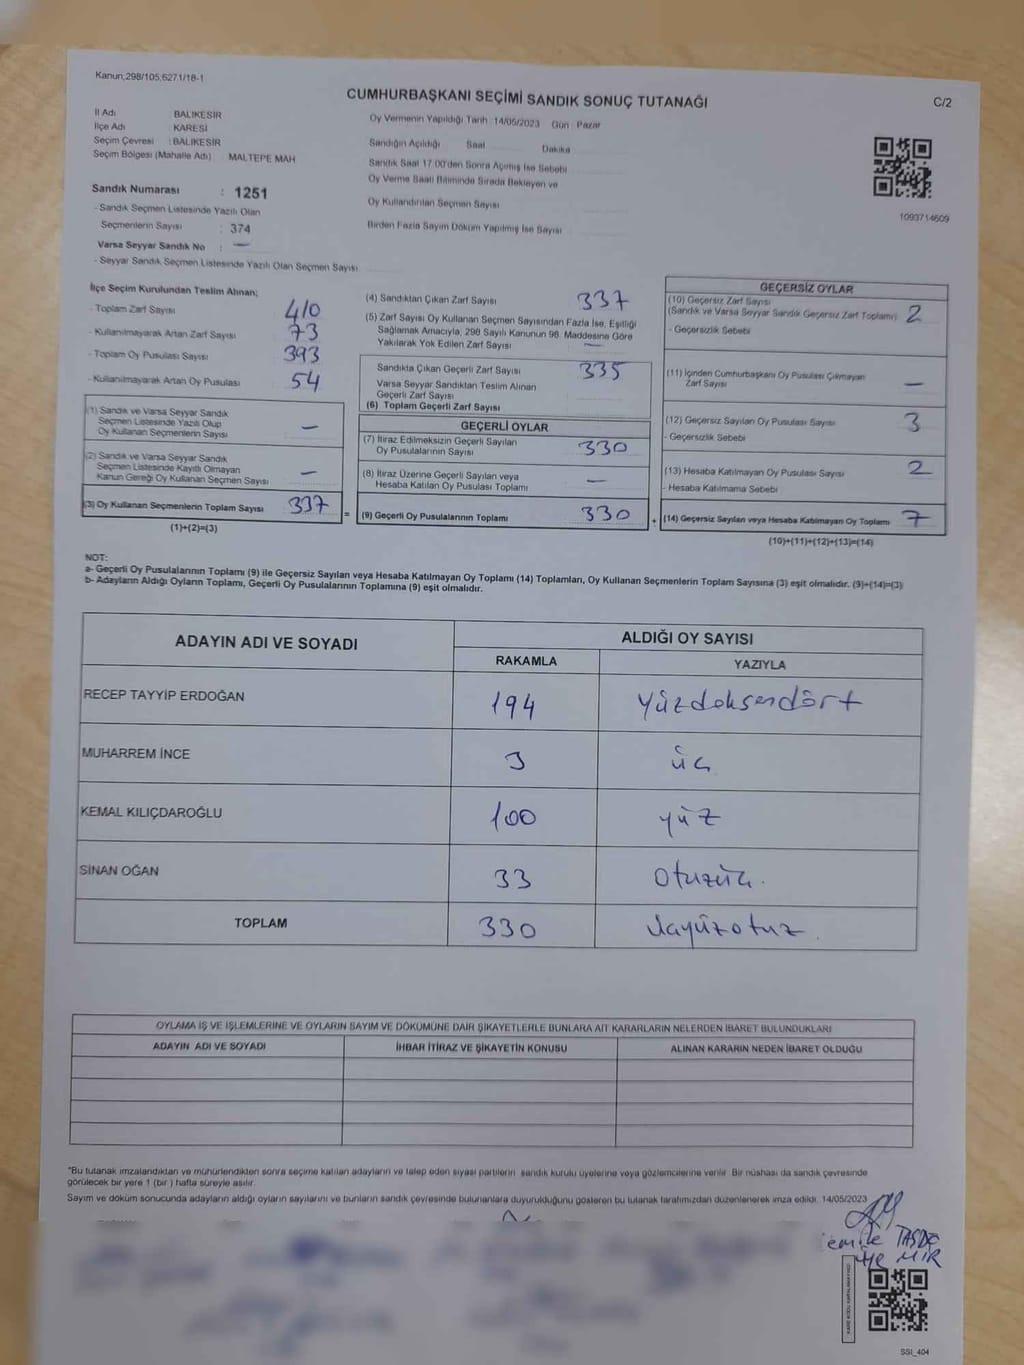 Kanun,298/105,6271/18-1
CUMHURBAŞKANI SEÇİMİ SANDIK SONUÇ TUTANAĞI
C/2
İl Adı BALIKESİR
İlçe Adı KARESİ
Seçim Çevresi : BALIKESİR
Seçim Bölgesi (Mahalle Adı) MALTEPE MAH
Oy Vermenin Yapıldığı Tarih : 14/05/2023 Gün : Pazar
Sandığın Açıldığı Saat Dakika
Sandık Saat 17.00'den Sonra Açılmış İse Sebebi
Oy Verme Saati Bitiminde Sırada Bekleyen ve
Oy Kullandırılan Seçmen Sayısı
Birden Fazla Sayım Döküm Yapılmış İse Sayısı
1093714609
Sandık Numarası : 1251
- Sandık Seçmen Listesinde Yazılı Olan
Seçmenlerin Sayısı : 374
Varsa Seyyar Sandık No : —
- Seyyar Sandık Seçmen Listesinde Yazılı Olan Seçmen Sayısı
İlçe Seçim Kurulundan Teslim Alınan;
- Toplam Zarf Sayısı 410
- Kullanılmayarak Artan Zarf Sayısı 73
- Toplam Oy Pusulası Sayısı 393
- Kullanılmayarak Artan Oy Pusulası 54
(1) Sandık ve Varsa Seyyar Sandık
Seçmen Listesinde Yazılı Olup
Oy Kullanan Seçmenlerin Sayısı —
(2) Sandık ve Varsa Seyyar Sandık
Seçmen Listesinde Kayıtlı Olmayan
Kanun Gereği Oy Kullanan Seçmen Sayısı —
(3) Oy Kullanan Seçmenlerin Toplam Sayısı 337 =
(1)+(2)=(3)
(4) Sandıktan Çıkan Zarf Sayısı 337
(5) Zarf Sayısı Oy Kullanan Seçmen Sayısından Fazla İse, Eşitliği
Sağlamak Amacıyla, 298 Sayılı Kanunun 98. Maddesine Göre
Yakılarak Yok Edilen Zarf Sayısı —
Sandıkta Çıkan Geçerli Zarf Sayısı 335
Varsa Seyyar Sandıktan Teslim Alınan
Geçerli Zarf Sayısı
(6) Toplam Geçerli Zarf Sayısı
GEÇERLİ OYLAR
(7) İtiraz Edilmeksizin Geçerli Sayılan
Oy Pusulalarının Sayısı 330
(8) İtiraz Üzerine Geçerli Sayılan veya
Hesaba Katılan Oy Pusulası Toplamı —
(9) Geçerli Oy Pusulalarının Toplamı 330 +
GEÇERSİZ OYLAR
(10) Geçersiz Zarf Sayısı
(Sandık ve Varsa Seyyar Sandık Geçersiz Zarf Toplamı) 2
- Geçersizlik Sebebi
(11) İçinden Cumhurbaşkanı Oy Pusulası Çıkmayan
Zarf Sayısı —
(12) Geçersiz Sayılan Oy Pusulası Sayısı 3
- Geçersizlik Sebebi
(13) Hesaba Katılmayan Oy Pusulası Sayısı 2
- Hesaba Katılmama Sebebi
(14) Geçersiz Sayılan veya Hesaba Katılmayan Oy Toplamı 7
(10)+(11)+(12)+(13)=(14)
NOT:
a- Geçerli Oy Pusulalarının Toplamı (9) ile Geçersiz Sayılan veya Hesaba Katılmayan Oy Toplamı (14) Toplamları, Oy Kullanan Seçmenlerin Toplam Sayısına (3) eşit olmalıdır. (9)+(14)=(3)
b- Adayların Aldığı Oyların Toplamı, Geçerli Oy Pusulalarının Toplamına (9) eşit olmalıdır.
ADAYIN ADI VE SOYADI ALDIĞI OY SAYISI
RAKAMLA YAZIYLA
RECEP TAYYİP ERDOĞAN 194 yüzdoksandört
MUHARREM İNCE 3 üç
KEMAL KILIÇDAROĞLU 100 yüz
SİNAN OĞAN 33 otuzüç.
TOPLAM 330 üçyüzotuz.
OYLAMA İŞ VE İŞLEMLERİNE VE OYLARIN SAYIM VE DÖKÜMÜNE DAİR ŞİKAYETLERLE BUNLARA AİT KARARLARIN NELERDEN İBARET BULUNDUKLARI
ADAYIN ADI VE SOYADI İHBAR İTİRAZ VE ŞİKAYETİN KONUSU ALINAN KARARIN NEDEN İBARET OLDUĞU
*Bu tutanak imzalandıktan ve mühürlendikten sonra seçime katılan adayların ve talep eden siyasi partilerin sandık kurulu üyelerine veya gözlemcilerine verilir. Bir nüshası da sandık çevresinde
görülecek bir yere 1 (bir ) hafta süreyle asılır.
Sayım ve döküm sonucunda adayların aldığı oyların sayılarını ve bunların sandık çevresinde bulunanlara duyurulduğunu gösteren bu tutanak tarafımızdan düzenlenerek imza edildi. 14/05/2023
TAŞDE
MİR
SSI_404